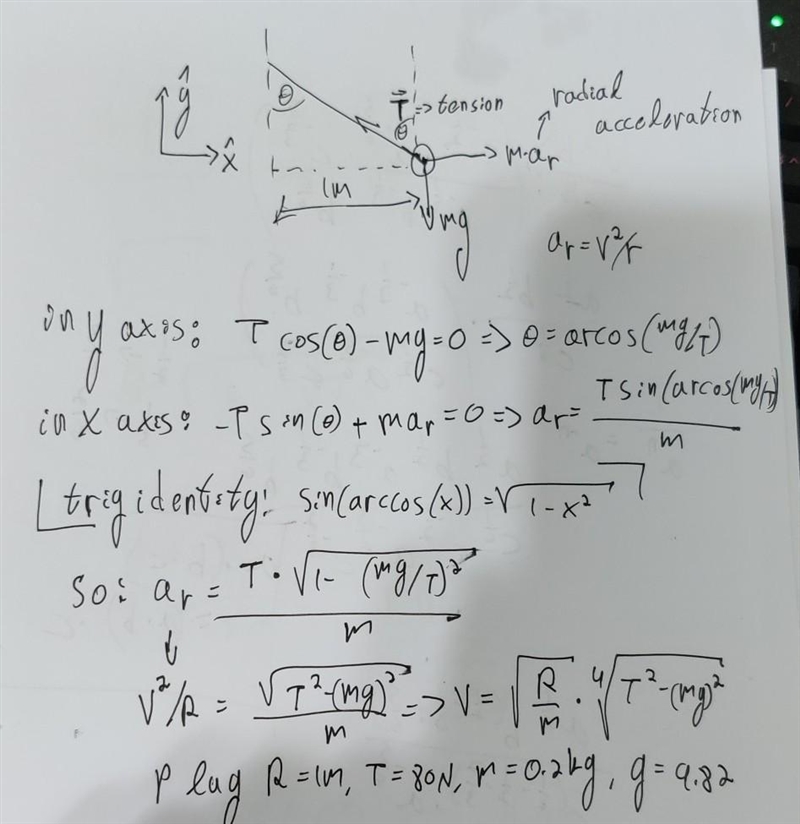 ŷ
x̂
θ
T⃗ => tension
θ
radial
acceleration
m·ar
1m
mg
ar = v²/r
in y axes: T cos(θ) - mg = 0 => θ = arcos(mg/T)
in x axes: -T sin(θ) + mar = 0 => ar = T sin(arcos(mg/T)) / m
trig identity: sin(arccos(x)) = √(1 - x²)
So: ar = T · √(1 - (mg/T)²) / m
↓
V²/R = √(T² - (mg)²) / m => V = √(R/m) · ⁴√(T² - (mg)²)
plug R = 1m, T = 80N, m = 0.2kg, g = 9.82